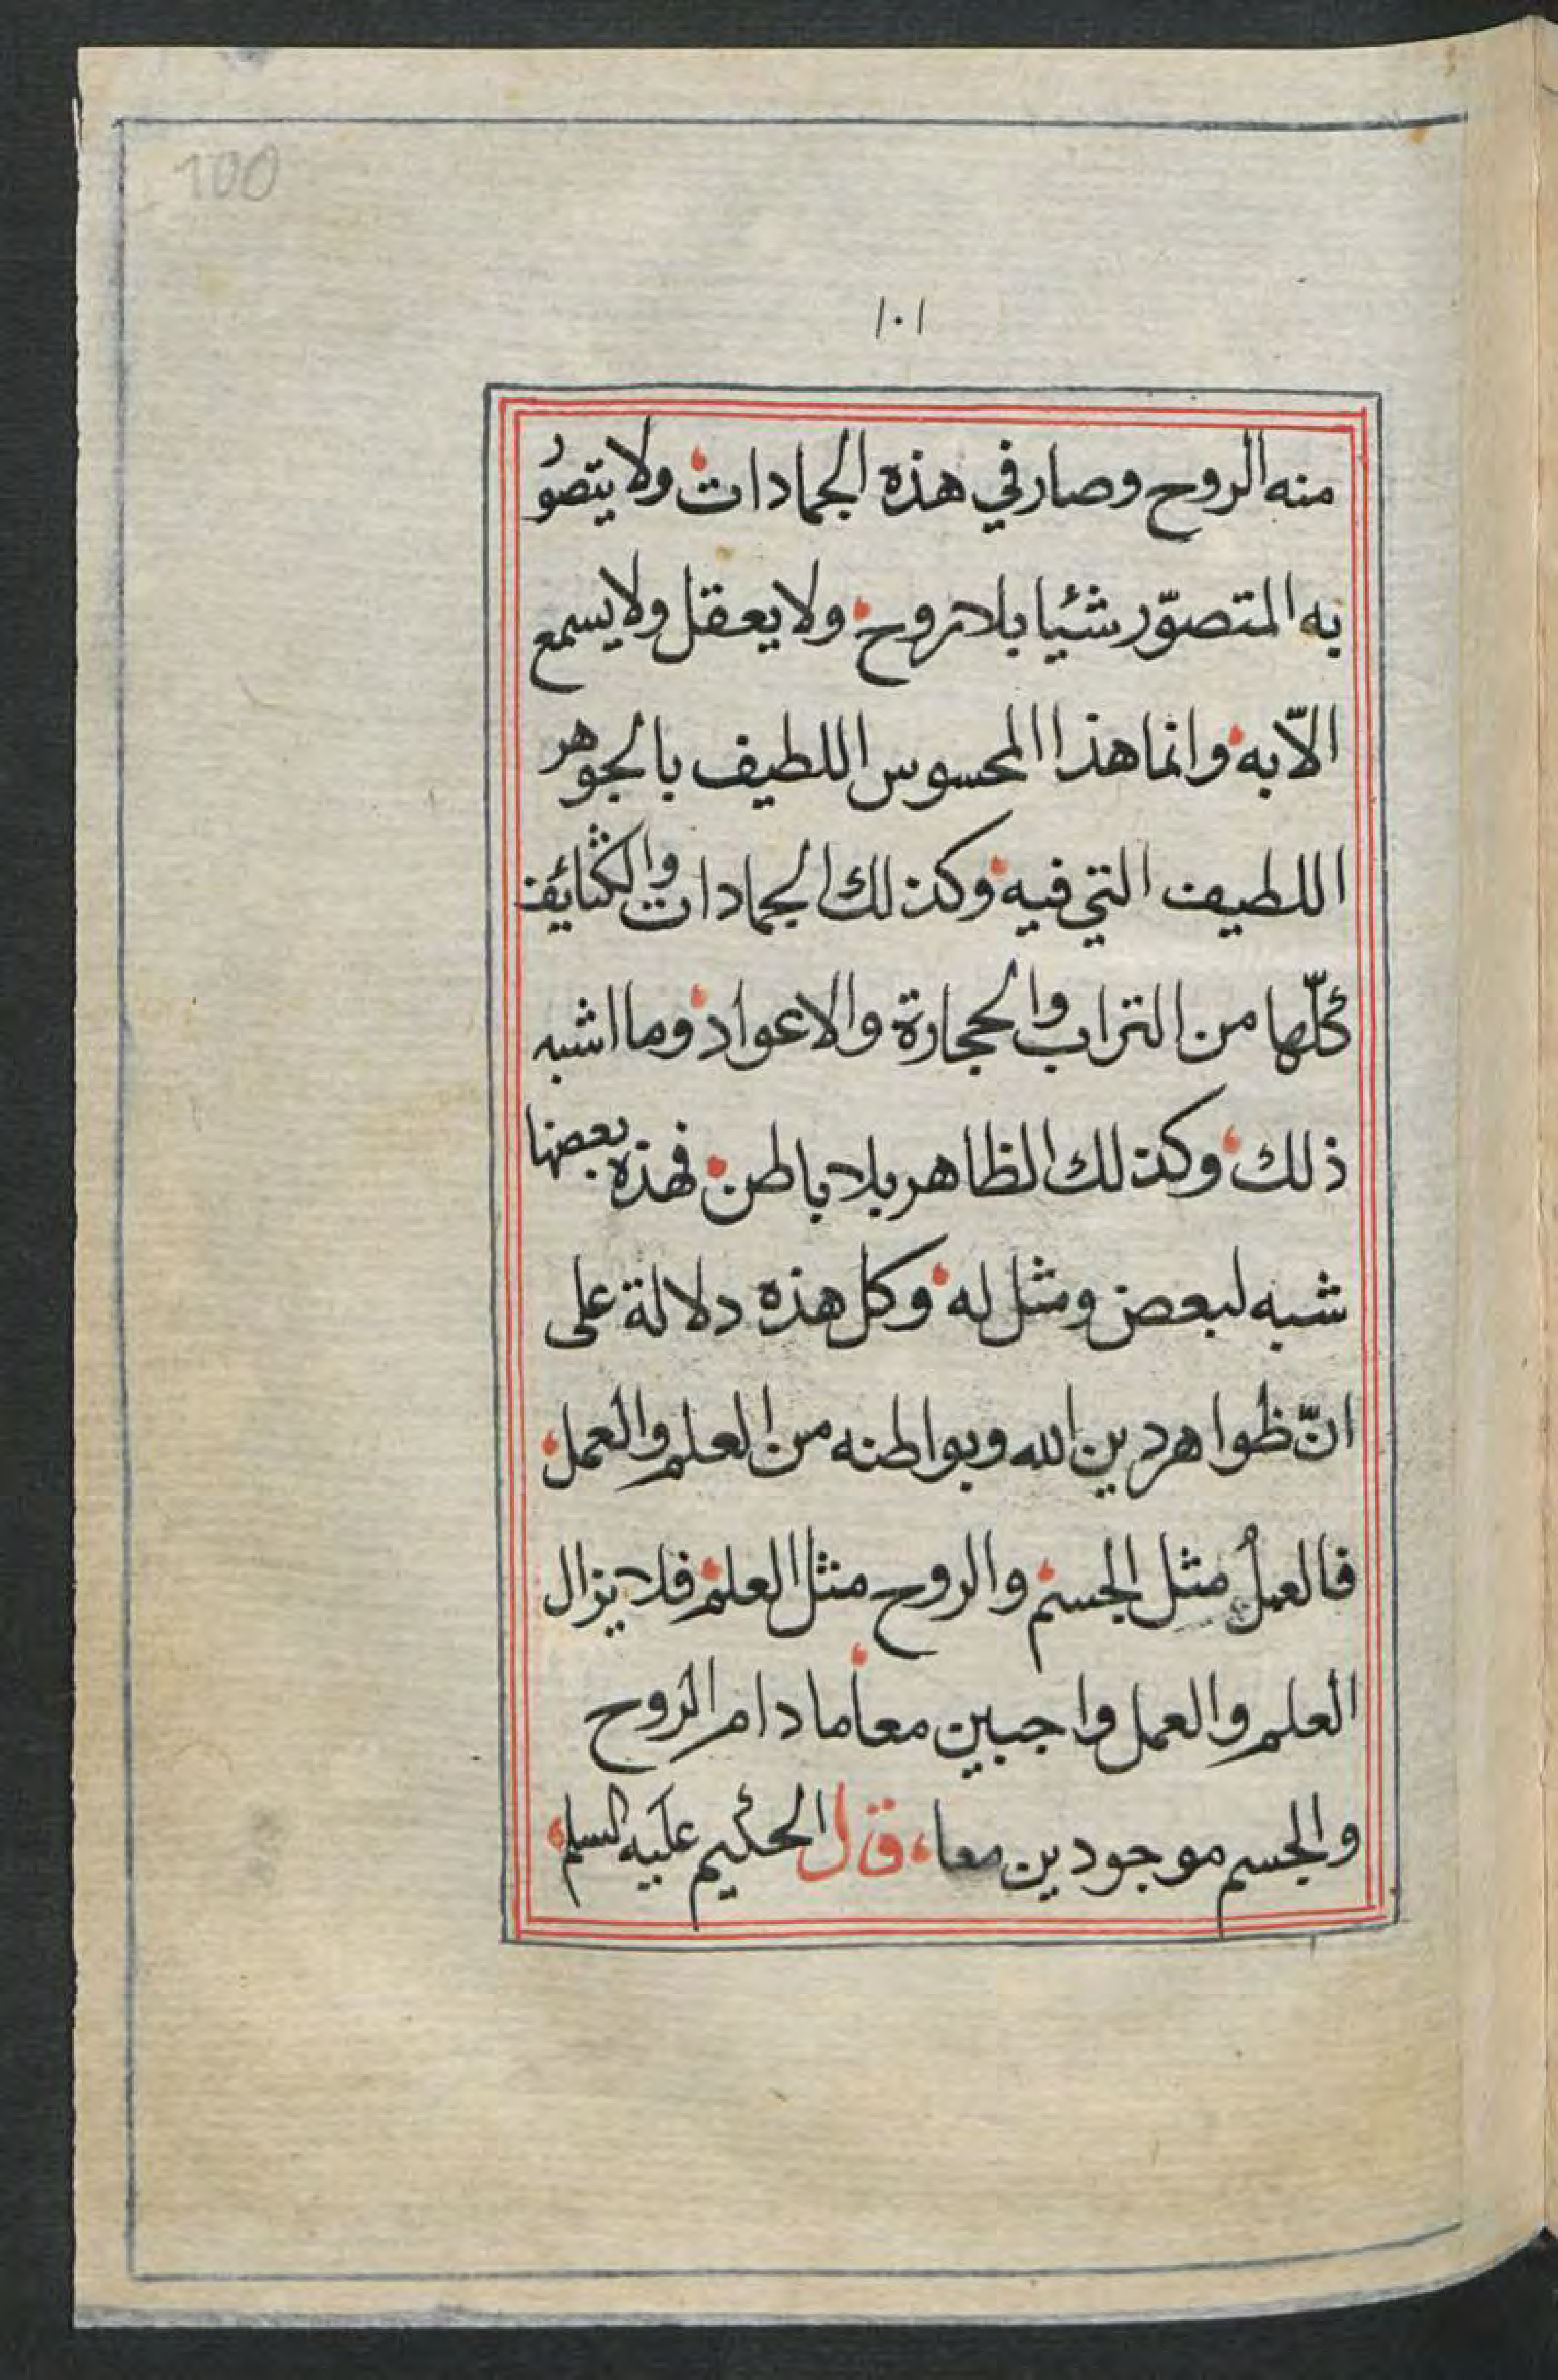 100
١٠١
منه الروح وصار في هذه الجمادات، ولا يتصوُر
به المتصوّر شئيا بلا روح، ولا يعقل ولا يسمع
الّا به، وانما هذا المحسوس اللطيف بالجوهر
اللطيف التي فيه، وكذلك الجمادات والكثائف
كلّها من التراب والحجارة والاعواد، وما اشبه
ذلك، وكذلك الظاهر بلا باطن، فهذه بعضها
شبه لبعض ومثل له، وكل هذه دلالة على
انّ ظواهر دين الله وبواطنه من العلم والعمل،
فالعملُ مثل الجسم، والروح مثل العلم، فلا يزال
العلم والعمل واجبين معا، ما دام الروح
والجسم موجودين معا، قال الحكيم عليه السلم،